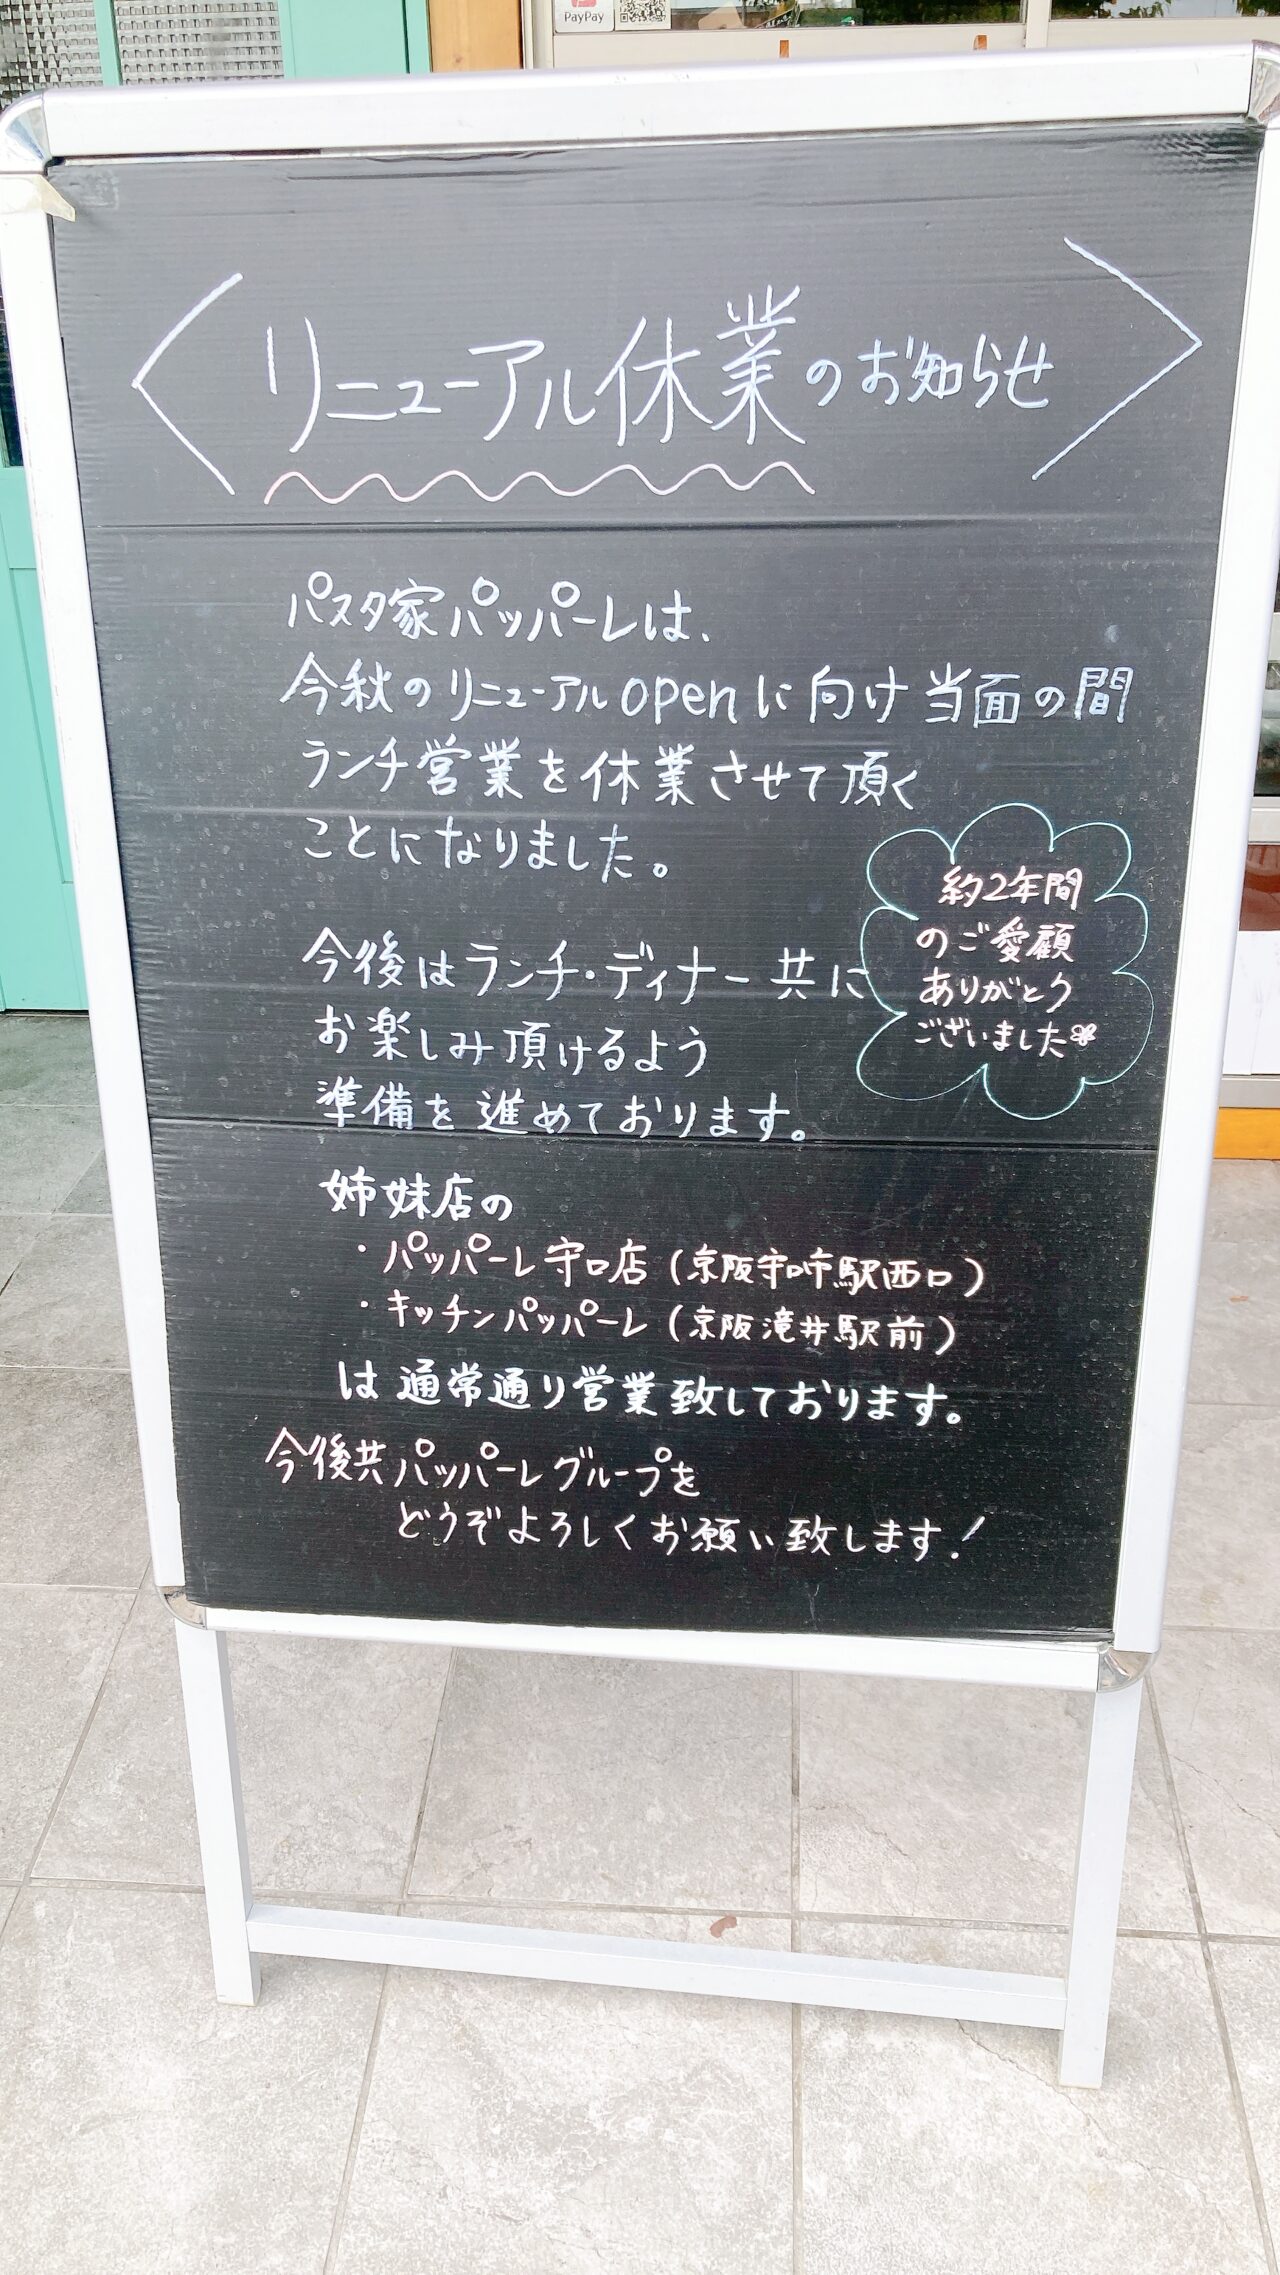 PayPay
〈リニューアル休業のお知らせ〉
パスタ家パッパーレは、
今秋のリニューアルopenに向け当面の間
ランチ営業を休業させて頂く
ことになりました。
約2年間
のご愛顧
ありがとう
ございました
今後はランチ・ディナー共に
お楽しみ頂けるよう
準備を進めております。
姉妹店の
・パッパーレ守口店(京阪守口市駅西口)
・キッチンパッパーレ(京阪滝井駅前)
は通常通り営業致しております。
今後共パッパーレグループを
どうぞよろしくお願い致します!